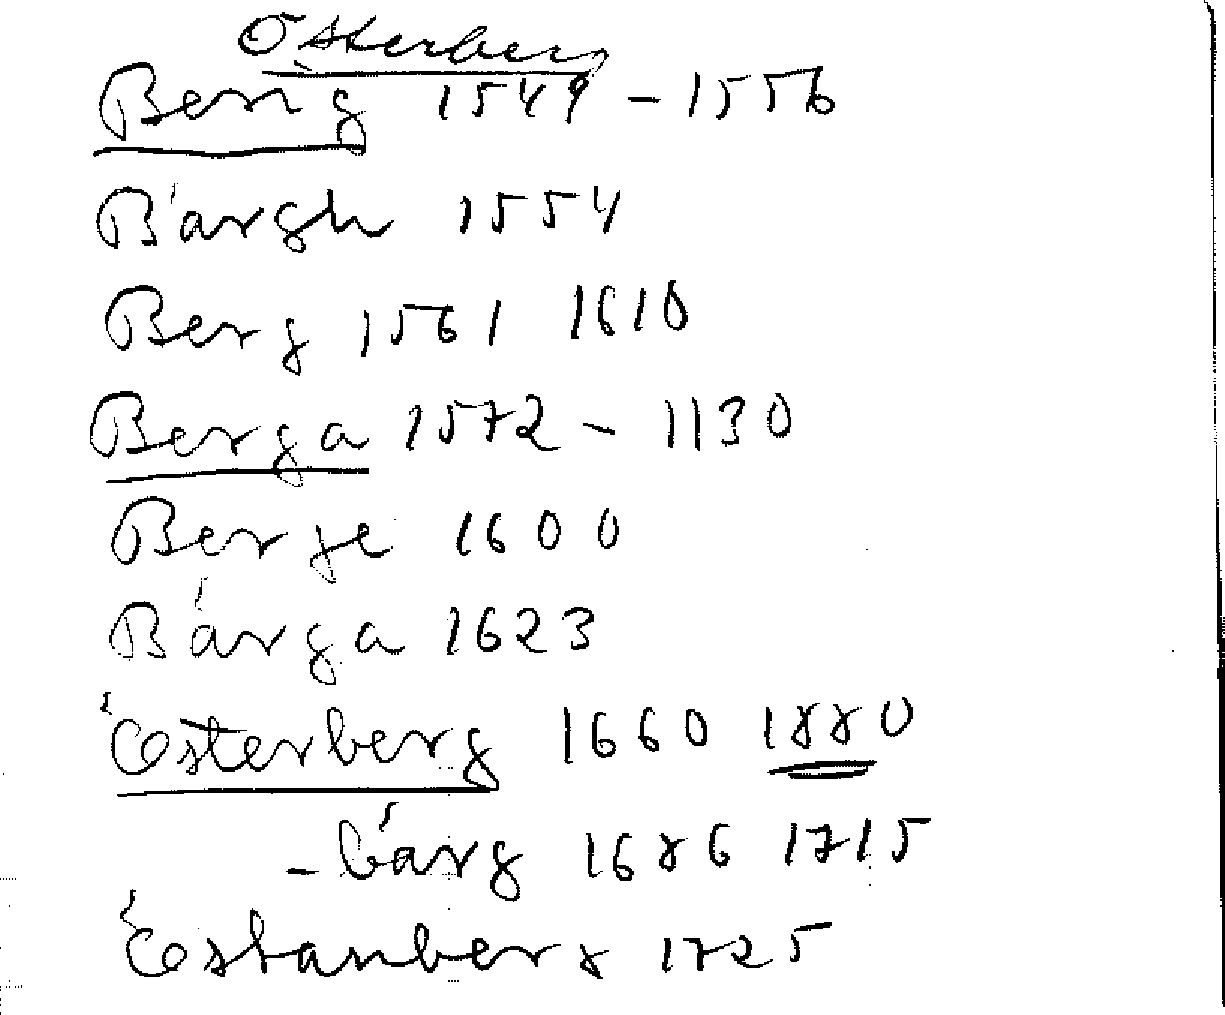 Österberg
Berg 1549 - 1556
Bärgh 1554
Berg 1561 1610
Berga 1572 - 1130
Berge 1600
Bärga 1623
Österberg 1660 1880
- bärg 1686 1715
Östanberg 1725